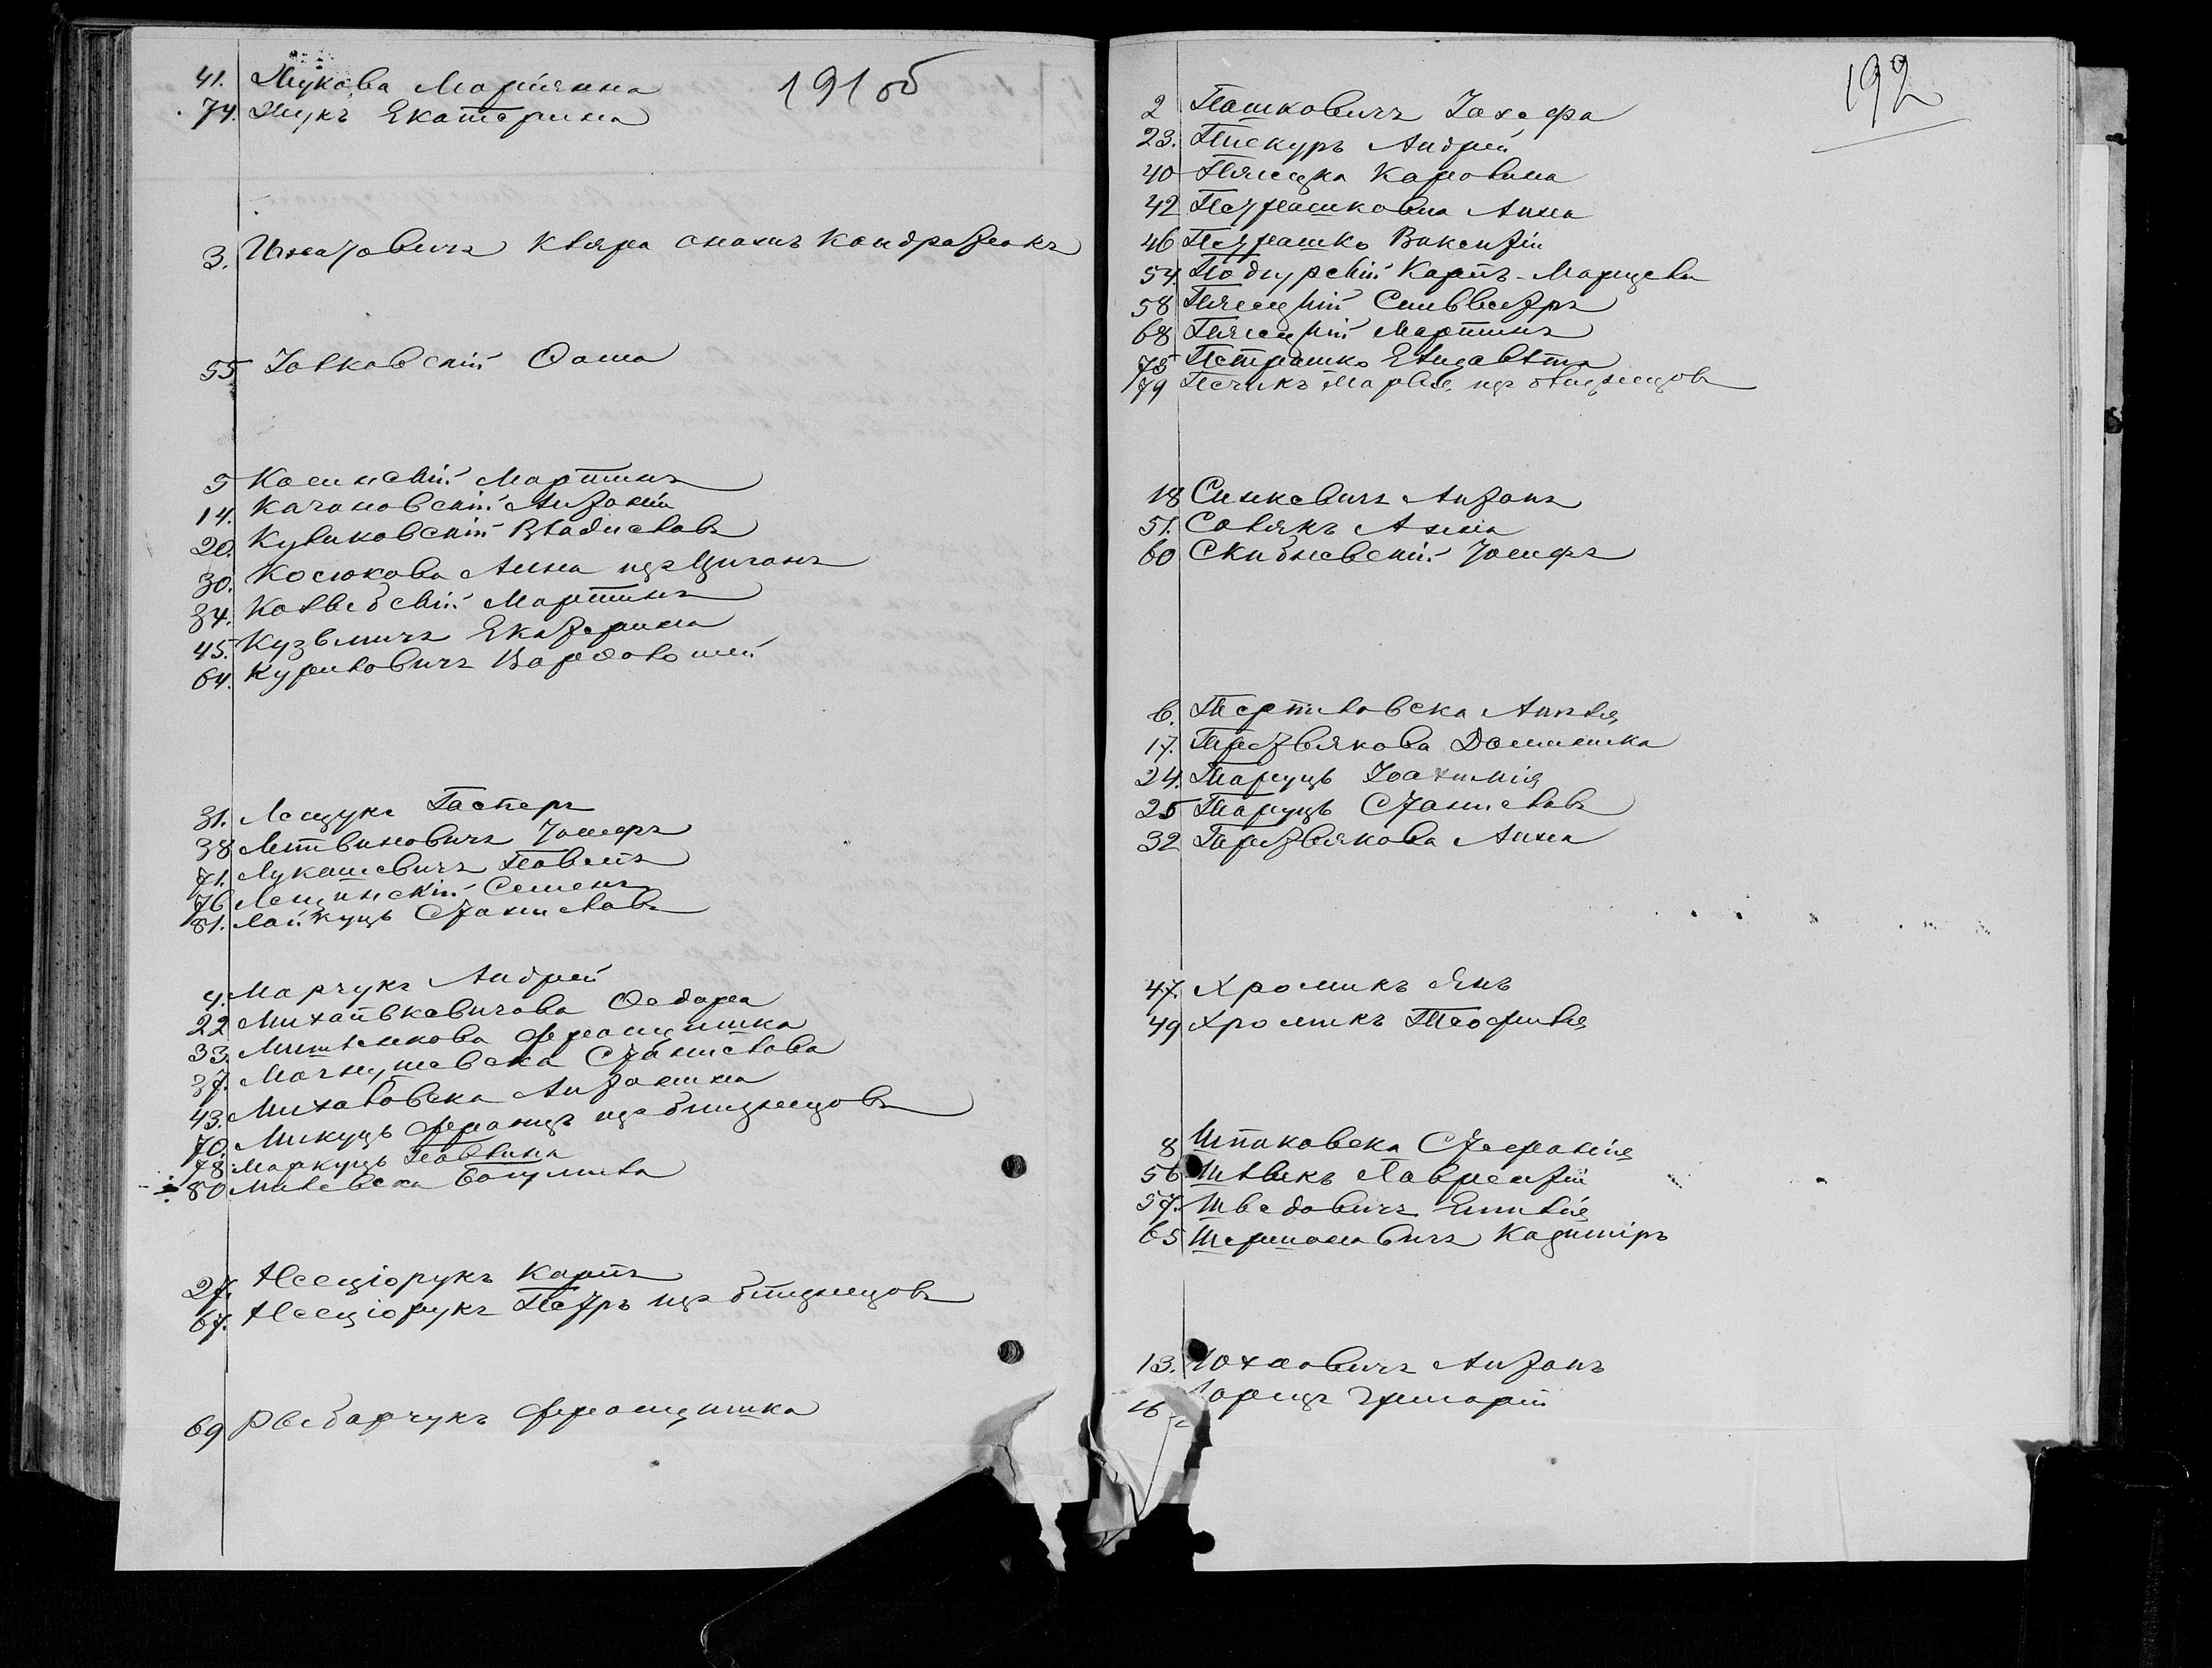 191 об
41. Жукова Маріянна
74. Жукъ Екатерина
3. Игнатовичъ Кляра онажъ Кондратюкъ
55 Іовковскій Фома
5 Касинскій Мартинъ
14. Качановскій Антоній
20. Куликовскій Владиславъ
30. Косюкова Анна изъ Цыганъ
34. Мартинъ
45. Кузьмичъ Екатерина
64. Куриловичъ Варфоломей
31. Лещукъ Гасперъ
38 Литвиновичъ Іосифъ
71. Лукашевичъ Павелъ
76 Лещинскій Семенъ
81. Лайкуць Станиславъ
4. Марчукъ Андрей
22 Михалькевичова Федора
33. Францишка
37. Станислава
43. Михаловска Антонина
70. Микуць Францъ изъ близнецовъ
78. Маркуць Павлина
80 Милевска Богумила
27. Несцiорукъ Карпъ
67. Несцiорукъ Петръ изъ близнецовъ
69 Рыбарчукъ Францишка
192
2 Пашковичъ Іозефа
23. Пискуръ Андрей
40 Пясецка Каролина
42 Петрашковна Анна
46 Петрашко Викентій
54. Карпъ
58 Пясецкій Сильвестръ
68 Пясецкій Мартинъ
75 Петрашко Елизавета
79 Печикъ Марія изъ близнецовъ
18 Синкевичъ Антонъ
51. Соlякъ Анна
60 Скибневскій Іосифъ
6. Тертиловска Анеля
17. Третьякова Доминика
24. Таруць Іоахимія
25 Таруць Станиславъ
32 Третьякова Анна
47. Хромикъ Янъ
49 Хромикъ Теофиля
8 Шпаковска Стефанія
56 Шлыкъ Лаврентій
57. Шведовичъ Емилія
65 Шермановичъ Казимiръ
13. Юхновичъ Антонъ
16